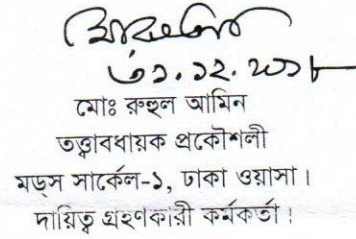 ৩১.১২.২০১৮
মোঃ রুহুল আমিন
তত্ত্বাবধায়ক প্রকৌশলী
মড্স সার্কেল-১, ঢাকা ওয়াসা।
দায়িত্ব গ্রহণকারী কর্মকর্তা।